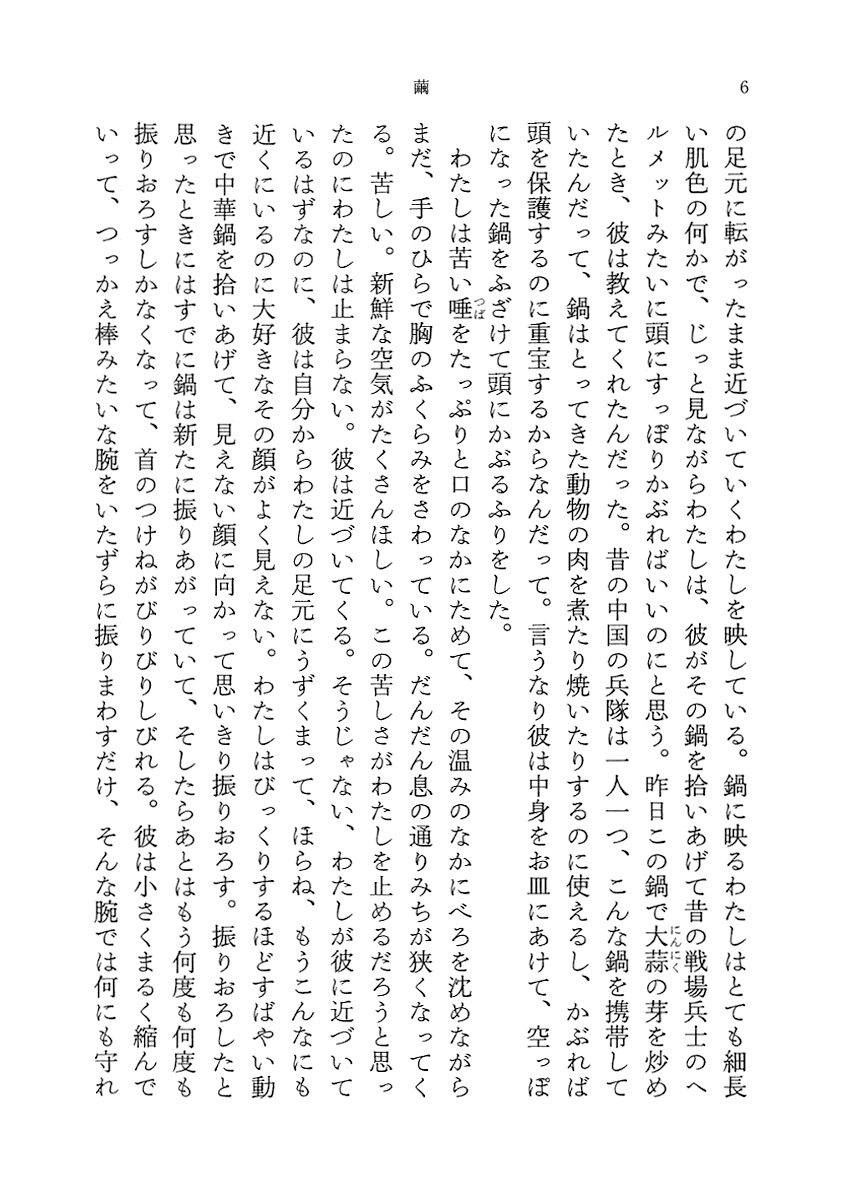 繭
6
の足元に転がったまま近づいていくわたしを映している。鍋に映るわたしはとても細長
い肌色の何かで、じっと見ながらわたしは、彼がその鍋を拾いあげて昔の戦場兵士のヘ
ルメットみたいに頭にすっぽりかぶればいいのにと思う。昨日この鍋で大蒜の芽を炒め
にんにく
たとき、彼は教えてくれたんだった。昔の中国の兵隊は一人一つ、こんな鍋を携帯して
いたんだって、鍋はとってきた動物の肉を煮たり焼いたりするのに使えるし、かぶれば
頭を保護するのに重宝するからなんだって。言うなり彼は中身をお皿にあけて、空っぽ
になった鍋をふざけて頭にかぶるふりをした。
わたしは苦い唾をたっぷりと口のなかにためて、その温みのなかにべろを沈めながら
つば
まだ、手のひらで胸のふくらみをさわっている。だんだん息の通りみちが狭くなってく
る。苦しい。新鮮な空気がたくさんほしい。この苦しさがわたしを止めるだろうと思っ
たのにわたしは止まらない。彼は近づいてくる。そうじゃない、わたしが彼に近づいて
いるはずなのに、彼は自分からわたしの足元にうずくまって、ほらね、もうこんなにも
近くにいるのに大好きなその顔がよく見えない。わたしはびっくりするほどすばやい動
きで中華鍋を拾いあげて、見えない顔に向かって思いきり振りおろす。振りおろしたと
思ったときにはすでに鍋は新たに振りあがっていて、そしたらあとはもう何度も何度も
振りおろすしかなくなって、首のつけねがびりびりしびれる。彼は小さくまるく縮んで
いって、つっかえ棒みたいな腕をいたずらに振りまわすだけ、そんな腕では何にも守れ